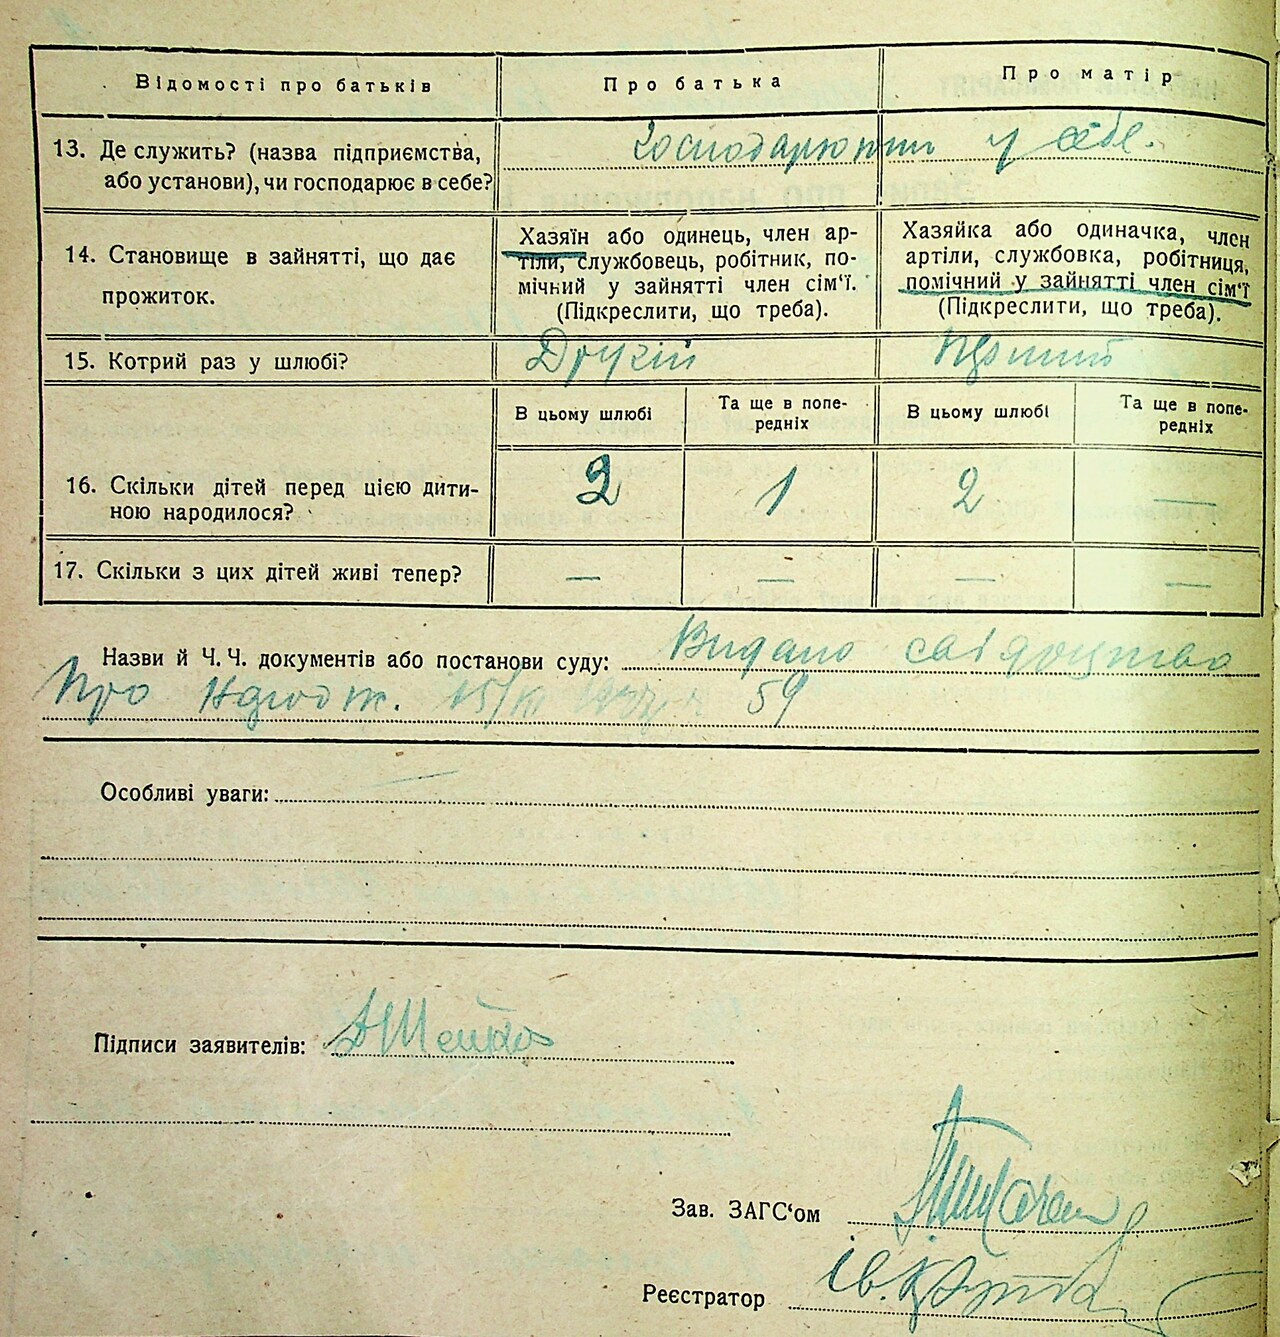 Відомості про батьків Про батька Про матір
13. Де служить? (назва підприємства, або установи), чи господарює в себе? Господарюють у себе.
14. Становище в зайнятті, що дає прожиток.
Хазяїн або одинець, член ар-
тіли, службовець, робітник, по-
мічний у зайнятті член сім'ї.
(Підкреслити, що треба).
Хазяйка або одиначка, член
артіли, службовка, робітниця,
помічний у зайнятті член сім'ї
(Підкреслити, що треба).
15. Котрий раз у шлюбі? Другий Перший
В цьому шлюбі Та ще в попе-
редніх В цьому шлюбі Та ще в попе-
редніх
16. Скільки дітей перед цією дити-
ною народилося? 2 1 2 —
17. Скільки з цих дітей живі тепер? — — — —
Назви й Ч. Ч. документів або постанови суду: Видано свідоцтво
про народж. 59
Особливі уваги:
Підписи заявителів:
Зав. ЗАГС'ом
Реєстратор Ів.